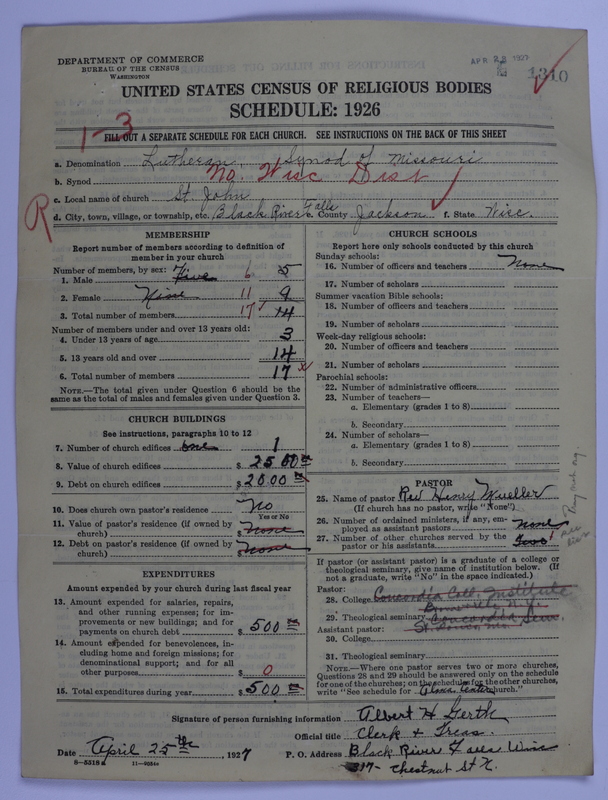 DEPARTMENT OF COMMERCE
BUREAU OF THE CENSUS
WASHINGTON
APR 28 1927
1310
UNITED STATES CENSUS OF RELIGIOUS BODIES
SCHEDULE: 1926
1-3
FILL OUT A SEPARATE SCHEDULE FOR EACH CHURCH. SEE INSTRUCTIONS ON THE BACK OF THIS SHEET
a. Denomination Lutheran, Synod of Missouri
b. Synod No. Wisc Dist
c. Local name of church St John
R
d. City, town, village, or township, etc. Black River Falls e. County Jackson f. State Wisc.
MEMBERSHIP
Report number of members according to definition of
member in your church
Number of members, by sex:
1. Male Five 6 5
2. Female Nine 11 9
3. Total number of members 17 14
Number of members under and over 13 years old:
4. Under 13 years of age 3
5. 13 years old and over 14
6. Total number of members 17 x
NOTE.—The total given under Question 6 should be the
same as the total of males and females given under Question 3.
CHURCH BUILDINGS
See instructions, paragraphs 10 to 12
7. Number of church edifices one 1
8. Value of church edifices $ 2500 00
9. Debt on church edifices $ 2000 00
10. Does church own pastor's residence? No
Yes or No
11. Value of pastor's residence (if owned by
church) $ None
12. Debt on pastor's residence (if owned by
church) $ None
EXPENDITURES
Amount expended by your church during last fiscal year
13. Amount expended for salaries, repairs,
and other running expenses; for im-
provements or new buildings; and for
payments on church debt $ 500 00
14. Amount expended for benevolences, in-
cluding home and foreign missions; for
denominational support; and for all
other purposes $ 0
15. Total expenditures during year $ 500 00
CHURCH SCHOOLS
Report here only schools conducted by this church
Sunday schools:
16. Number of officers and teachers None
17. Number of scholars
Summer vacation Bible schools:
18. Number of officers and teachers
19. Number of scholars
Week-day religious schools:
20. Number of officers and teachers
21. Number of scholars
Parochial schools:
22. Number of administrative officers
23. Number of teachers—
a. Elementary (grades 1 to 8)
b. Secondary
24. Number of scholars—
a. Elementary (grades 1 to 8)
b. Secondary
PASTOR
25. Name of pastor Rev Henry Mueller
(If church has no pastor, write "None")
26. Number of ordained ministers, if any, em-
ployed as assistant pastors none
27. Number of other churches served by the
pastor or his assistants Two 1
If pastor (or assistant pastor) is a graduate of a college or
theological seminary, give name of institution below. (If
not a graduate, write "No" in the space indicated.)
Pastor:
28. College Concordia Coll. Institute
29. Theological seminary Concordia Sem.
Assistant pastor:
30. College
31. Theological seminary
NOTE.—Where one pastor serves two or more churches,
Questions 28 and 29 should be answered only on the schedule
for one of the churches; on the schedules for the other churches,
write "See schedule for Alma Center church."
Signature of person furnishing information Albert H Gerth
Official title Clerk & Treas.
Date April 25 the, 1927 P. O. Address Black River Falls Wisc
317- Chestnut St N.
8-5318 a 11-9034a